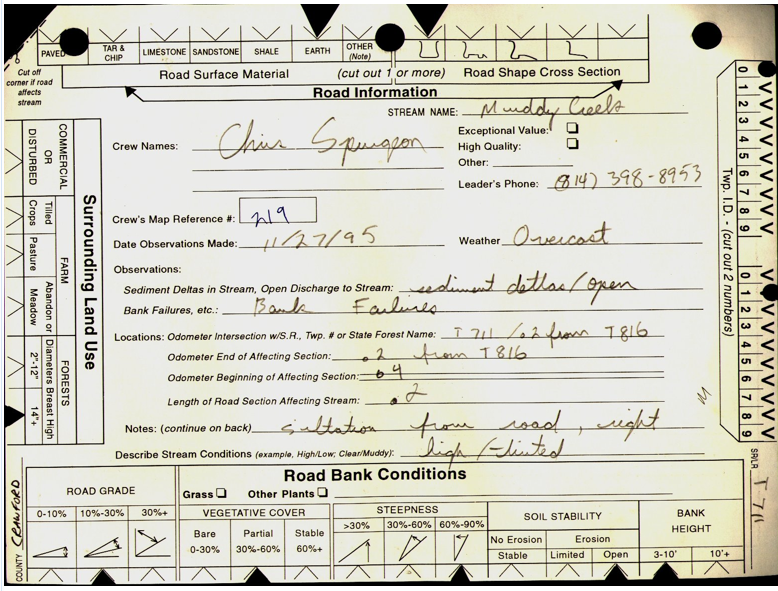 PAVED TAR & CHIP LIMESTONE SANDSTONE SHALE EARTH OTHER (Note)
Cut off corner if road affects stream
Road Surface Material (cut out 1 or more) Road Shape Cross Section
Road Information
STREAM NAME: Muddy Creek
Crew Names: Chris Spurgeon
Exceptional Value:
High Quality:
Other:
Leader's Phone: (814) 398-8953
Crew's Map Reference #: 219
Date Observations Made: 11/27/95 Weather Overcast
Observations:
Sediment Deltas in Stream, Open Discharge to Stream: sediment deltas/open
Bank Failures, etc.: Bank Failures
Locations: Odometer Intersection w/S.R., Twp. # or State Forest Name: T711/.2 from T816
Odometer End of Affecting Section: .2 from T816
Odometer Beginning of Affecting Section: .4
Length of Road Section Affecting Stream: .2
Notes: (continue on back) siltation from road, right
Describe Stream Conditions (example, High/Low; Clear/Muddy): high/tinted
Surrounding Land Use
COMMERCIAL OR DISTURBED
FARM
Tilled Crops
Pasture
Abandon or Meadow
FORESTS
Diameters Breast High
2"-12"
14"+
Twp. I.D. - (cut out 2 numbers)
0 1 2 3 4 5 6 7 8 9
0 1 2 3 4 5 6 7 8 9
SR/LR T 711
COUNTY CRAWFORD
Road Bank Conditions
ROAD GRADE
0-10% 10%-30% 30%+
Grass Other Plants
VEGETATIVE COVER
Bare 0-30% Partial 30%-60% Stable 60%+
STEEPNESS
>30% 30%-60% 60%-90%
SOIL STABILITY
No Erosion Erosion
Stable Limited Open
BANK HEIGHT
3-10' 10'+